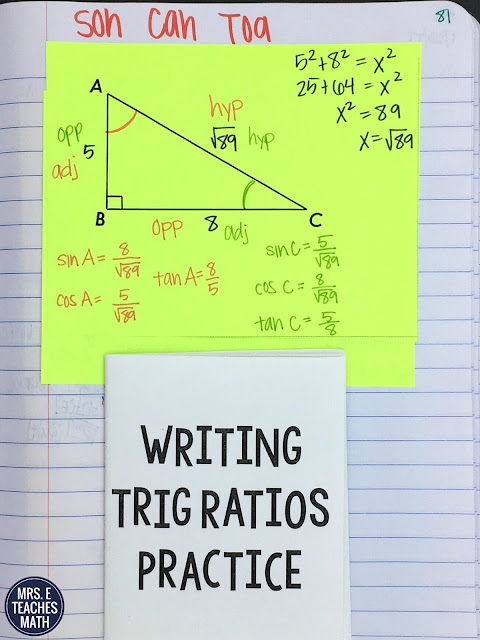 SOH CAH TOA
81
5² + 8² = x²
25 + 64 = x²
x² = 89
x = √89
A
hyp
√89 hyp
opp
adj 5
B
8
C
opp
adj
sin A = 8/√89
cos A = 5/√89
tan A = 8/5
sin C = 5/√89
cos C = 8/√89
tan C = 5/8
WRITING
TRIG RATIOS
PRACTICE
MRS. E
TEACHES
MATH